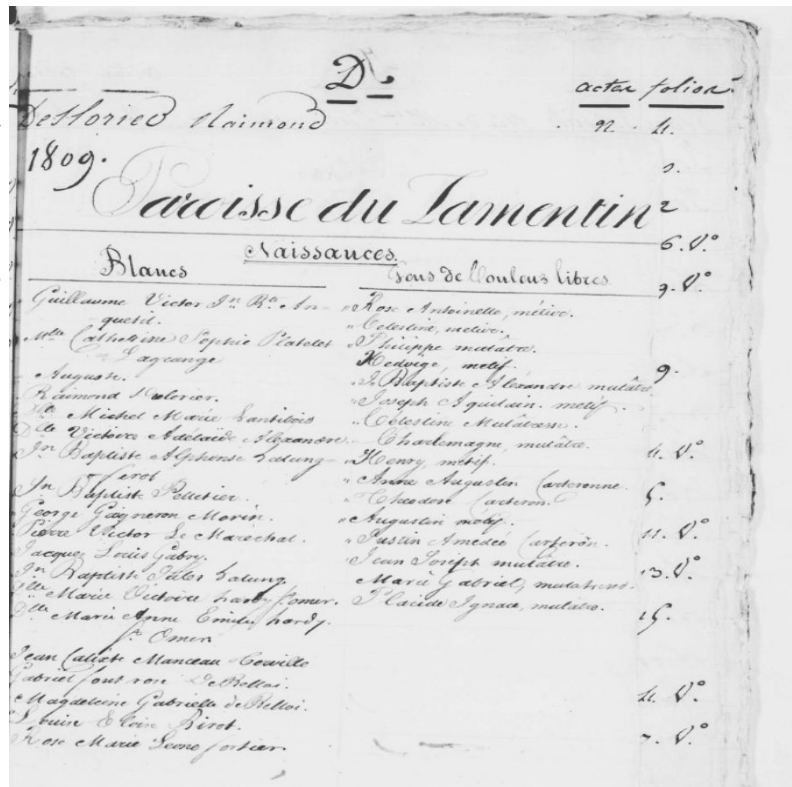 D.
actes folios
Desloried Raimond 92. 4.
1809.
2.
Paroisse du Lamentin 2
Naissances. 6. V°
Blancs
Gens de Couleur libres 9. V°
Guillaume Victor Jn Bte An-
quetil.
Mlle Catherine Sophie Platelet
Lagrange
Auguste.
Raimond
Michel Marie
Dlle Victoire Adélaïde Alexandre
Jn Baptiste Alphonse
Jn Baptiste Pelletier.
George Gaigneron Morin.
Pierre Victor Le Marechal.
Jacques Louis Gabry.
Jn Baptiste Jules
Dlle Marie Victoire hardy St omer.
Dlle Marie Anne Emilie hardy
St Omer
Jean Calixte Manceau
Gabriel
Magdeleine Gabrielle de Belloi.
Louise Birot.
Rose Marie Leone fortier.
" Rose Antoinette, métive.
" Celestine, métive.
" Philippe mulâtre.
Hedvige, métif. 9.
" Jn Baptiste Alexandre mulâtre
" Joseph Aquilain. métif.
" Célestine Mulatresse.
Charlemagne, mulâtre. 4. V°
" Henry, métif.
" Anne Augustin Carteronne.
" Theodore Carteron. 5.
" Augustin métif.
" Justin Amedée Carteron. 11. V°
Jean Joseph mulâtre.
Marie Gabriel, mulatresse. 13. V°
Placide Ignace, mulâtre.
15.
4. V°
7. V°